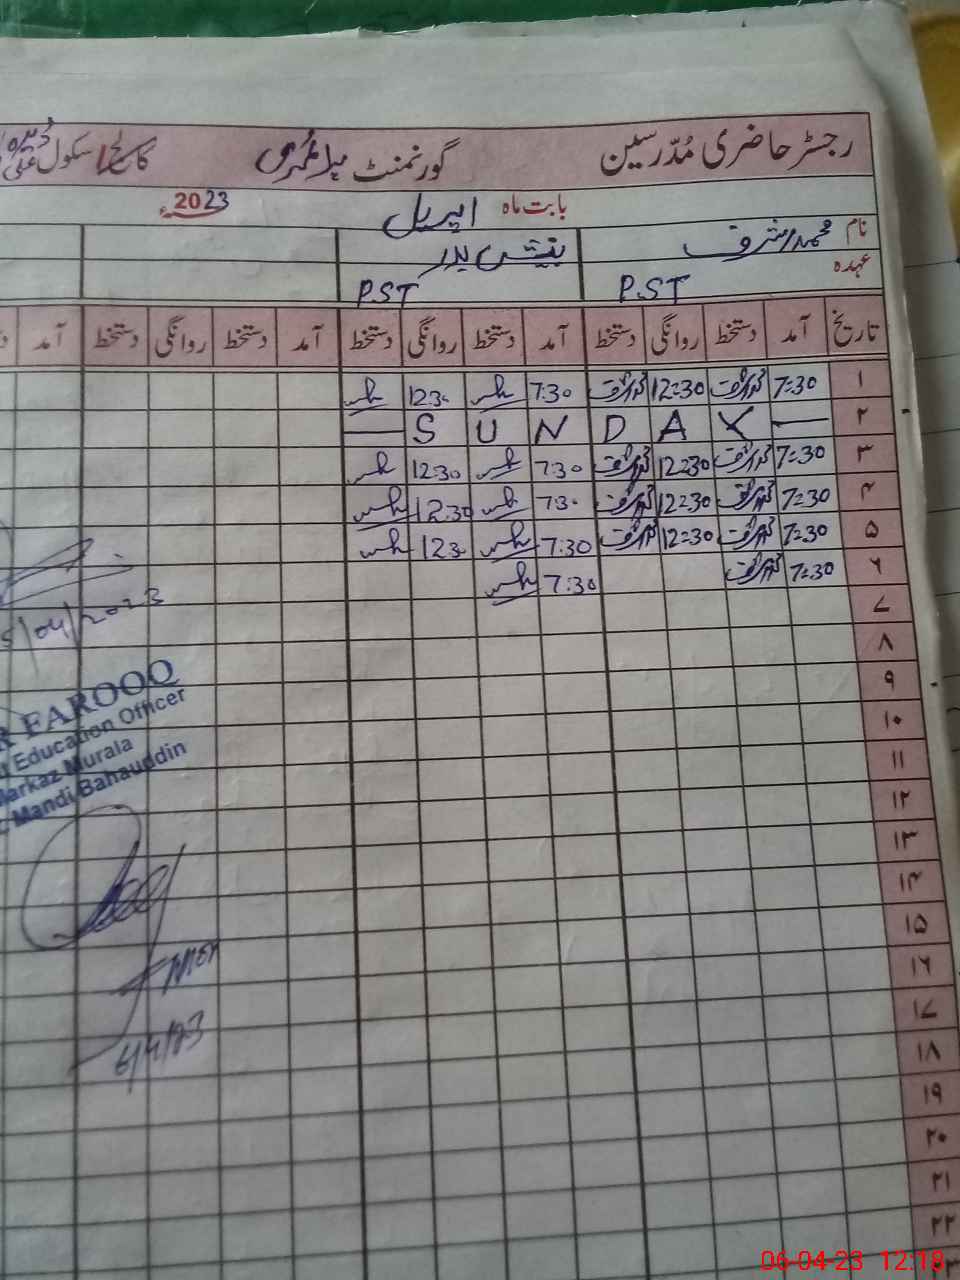 رجسٹر حاضری مُدّرسین گورنمنٹ پرائمری کالج/سکول
بابت ماہ اپریل 2023ء
نام محمد اشرف
عہدہ P.ST P.ST
تاریخ آمد دستخط روانگی دستخط آمد دستخط روانگی دستخط آمد دستخط روانگی دستخط آمد
۱ 7:30 12:30 7:30 12:30
۲ — S U N D A Y —
۳ 7:30 12:30 7:30 12:30
۴ 7:30 12:30 7:30 12:30
۵ 7:30 12:30 7:30 12:30
۶ 7:30 7:30
۷
۸
۹
۱۰
۱۱
۱۲
۱۳
۱۴
۱۵
۱۶
۱۷
۱۸
۱۹
۲۰
۲۱
۲۲
5/04/2023
FAROOQ
Education Officer
Markaz Murala
Mandi Bahauddin
6/4/23
06-04-23 12:18